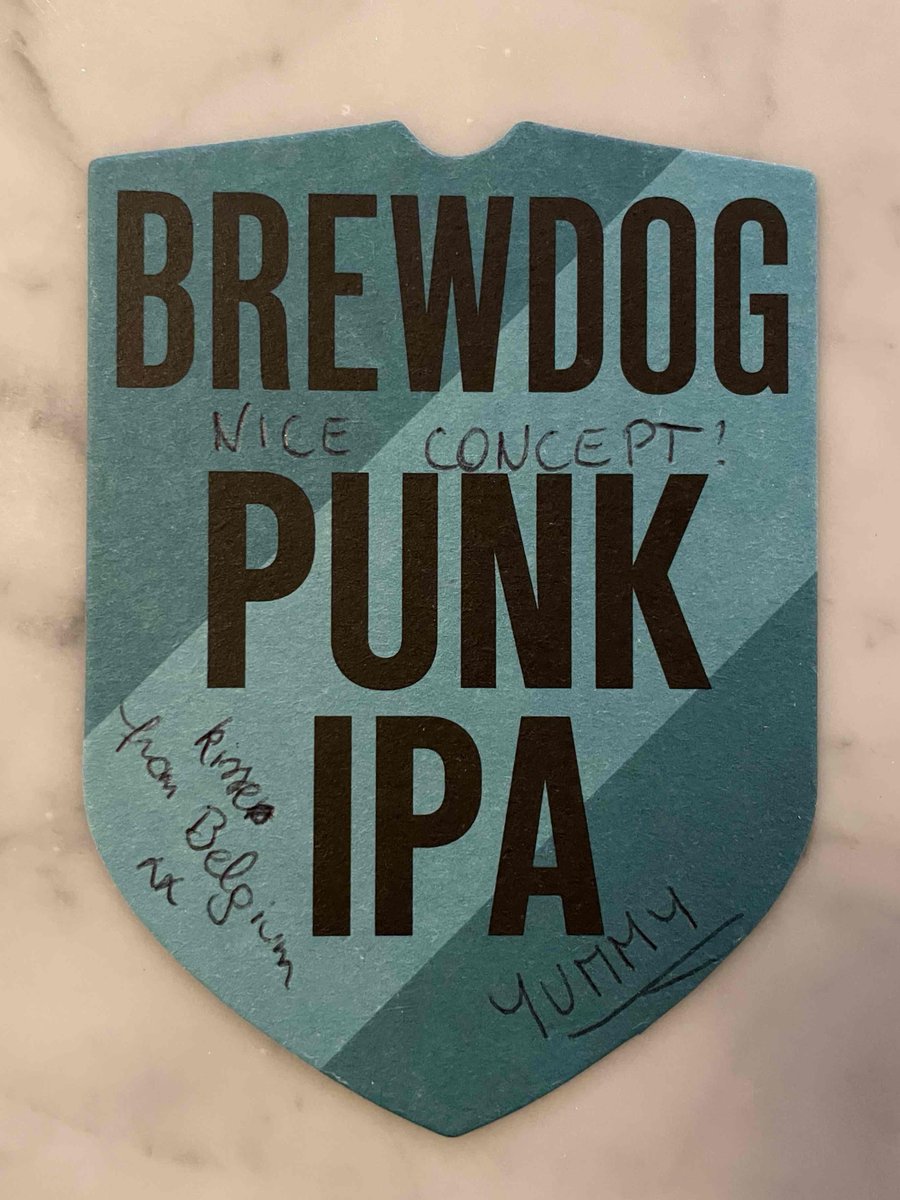 BREWDOG
NICE CONCEPT!
PUNK
IPA
kisses
from Belgium
xx
YUMMY